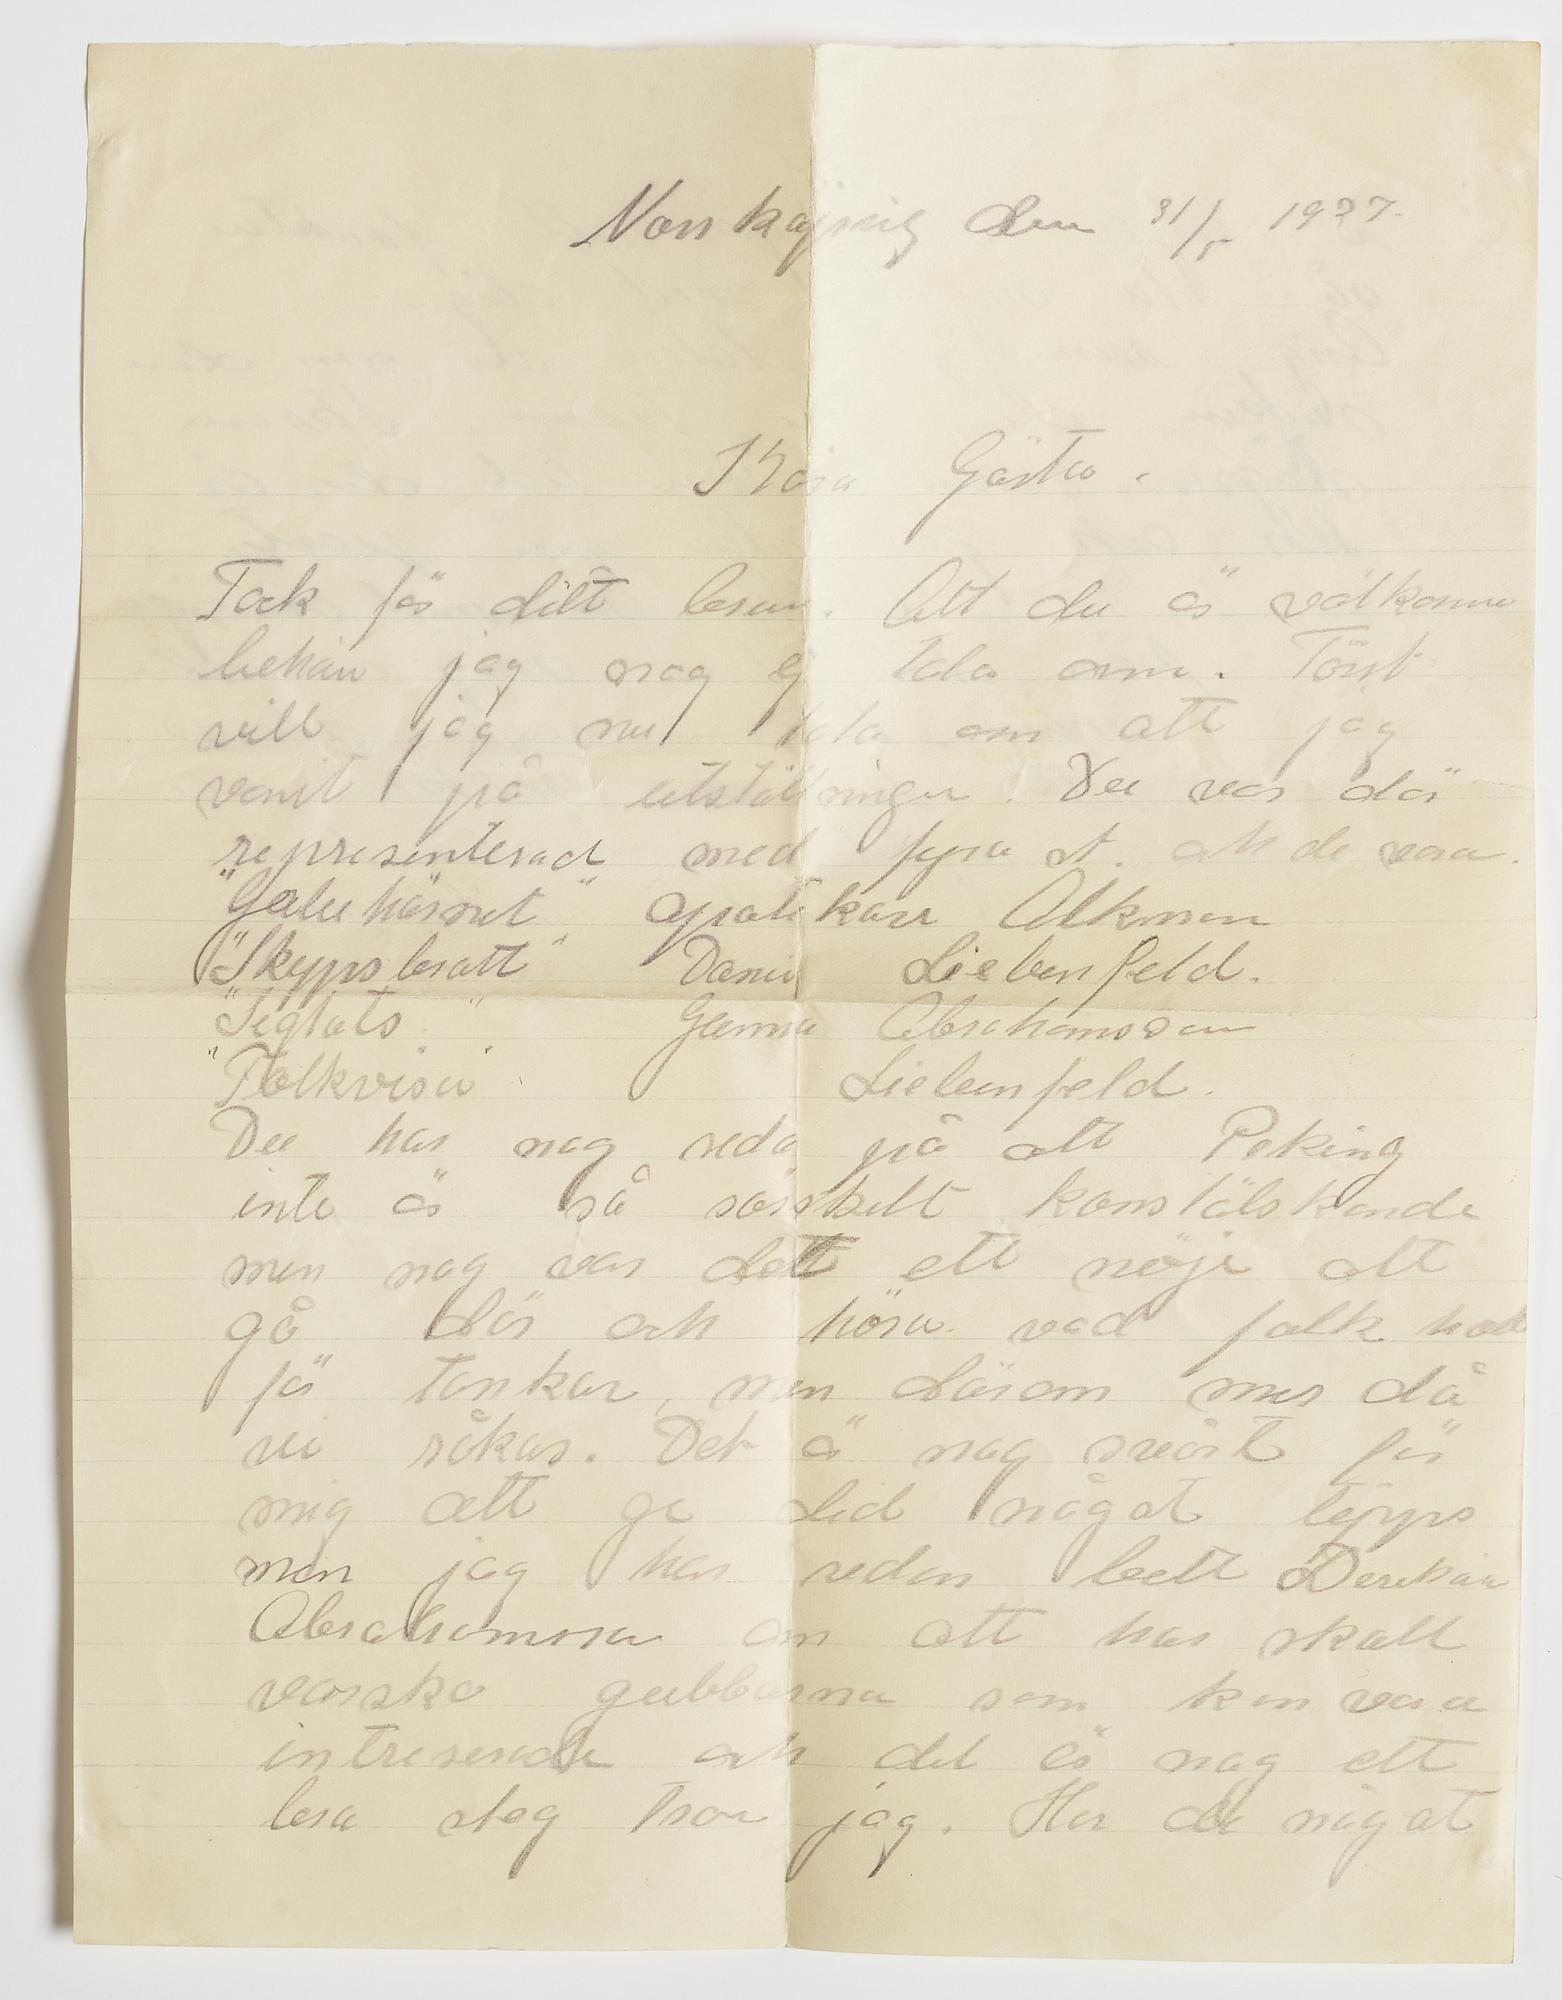 Norrköping den 31/5 1937.
Kära Gösta.
Tack för ditt brev. Att du är välkomme
behöv jag nog ej tala om. Först
vill jag nu tala om att jag
varit på utställningen. Du var där
representerad med fyra st. och de voro.
"Gatuhörnet" apotekare Alkman
"Skeppsbrott" Danie Liebenfeld.
"Seglats" Gunnar Abrahamsson
"Folkvisa" Liebenfeld.
Du har nog reda på att Peking
inte är så särskilt konstälskande
men nog var dett ett nöje att
gå där och höra vad folk had
för tankar, men därom mer då
vi råkas. Det är nog svårt för
mig att ge did något tipps
men jag har redan bett
Abrahamsson om att han skall
varsko gubbarna som kan vara
intreserade och det är nog ett
bra steg tror jag. Har du något